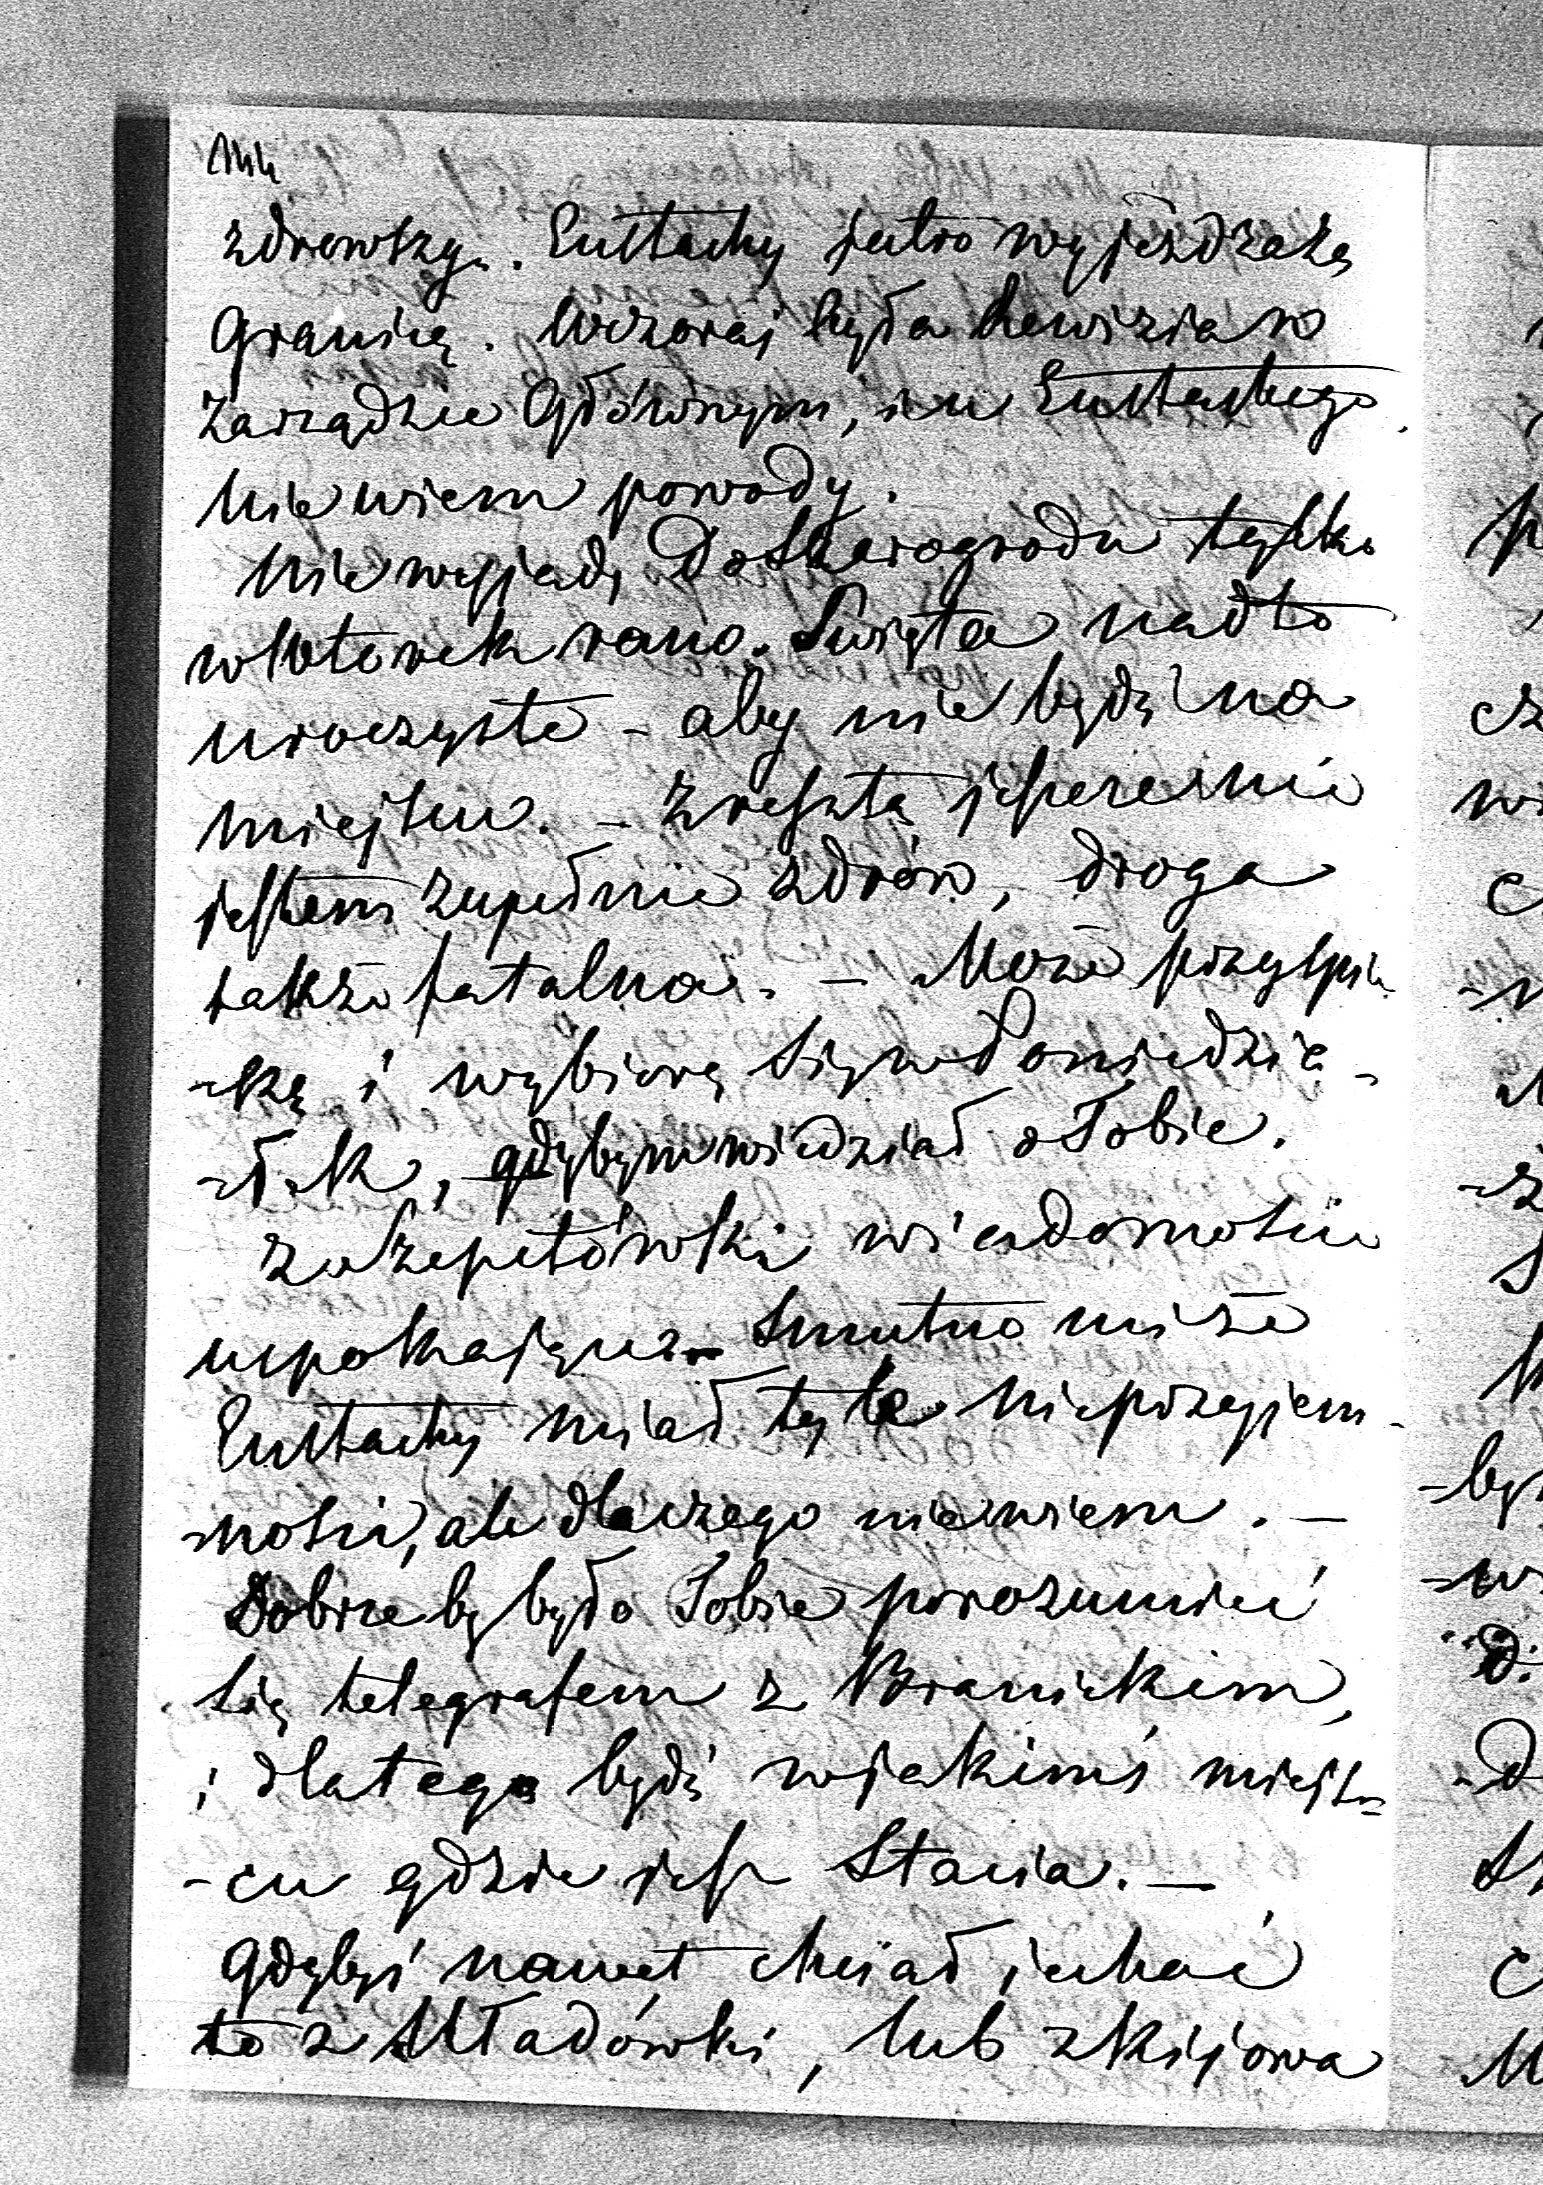 144
zdrowszy. Eustachy jutro wyjeżdza zą
Granicę. Wczoraj była Rewizia w
Zarządzie Głównym, i u Eustachego.
Nie wiem powody.
Nie wyjadę do Skierogrodu tylko
w Wtorek rano. Święta nadto
uroczyste - aby nie będę na
miejscu. - Zresztą jeszcze nie
jestem zupełnie zdrów, droga
także fatalna. - Może przyspie
-szę i wybiorę się w Poniedzia-
-łek, gdybym wiedział o Tobie.
z Szepetówki wiadomoście
uspokające. Smutno mi że
Eustachy miał tyle nieprzyjem-
-ności, ale dlaczego nie wiem. -
Dobrze by było Tobie porozumieć
się telegrafem z Branickim,
i dlatego będę w jakimś miejs-
-cu gdzie jest Stacia. -
Gdybyś nawet chciał jechać
to z Mładówki, lub z Kijowa